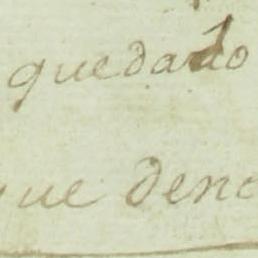 quedado
que deno